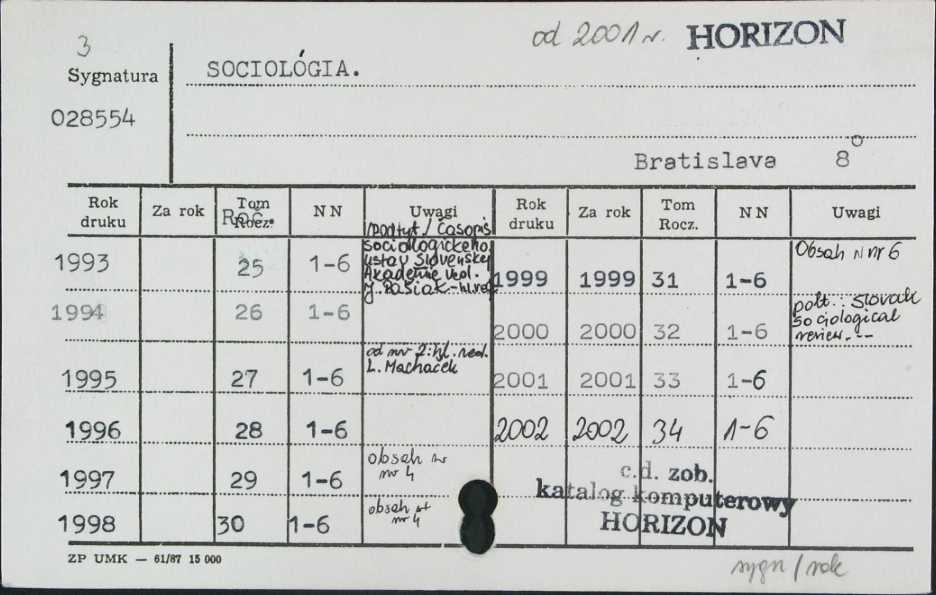 3
od 2001 r. HORIZON
Sygnatura
SOCIOLÓGIA.
028554
Bratislava 8°
Rok druku Za rok Tom Rocz. Roč. NN Uwagi Rok druku Za rok Tom Rocz. NN Uwagi
1993 25 1-6 /podtyt./ Časopis
sociologického
ústav Slovenskej
Akadémie ved.
J. Pašiak - hl. red.
1999 1999 31 1-6 Obsah w nr 6
1994 26 1-6
2000 2000 32 1-6 podt.: Slovak
sociological
review.--
1995 27 1-6 od nr 2: hl. red.
L. Machaček
2001 2001 33 1-6
1996 28 1-6
2002 2002 34 1-6
1997 29 1-6 obsah w
nr 4
1998 30 1-6 obsah
nr 4
c.d. zob.
katalog komputerowy
HORIZON
ZP UMK — 61/87 15 000
sygn/rok